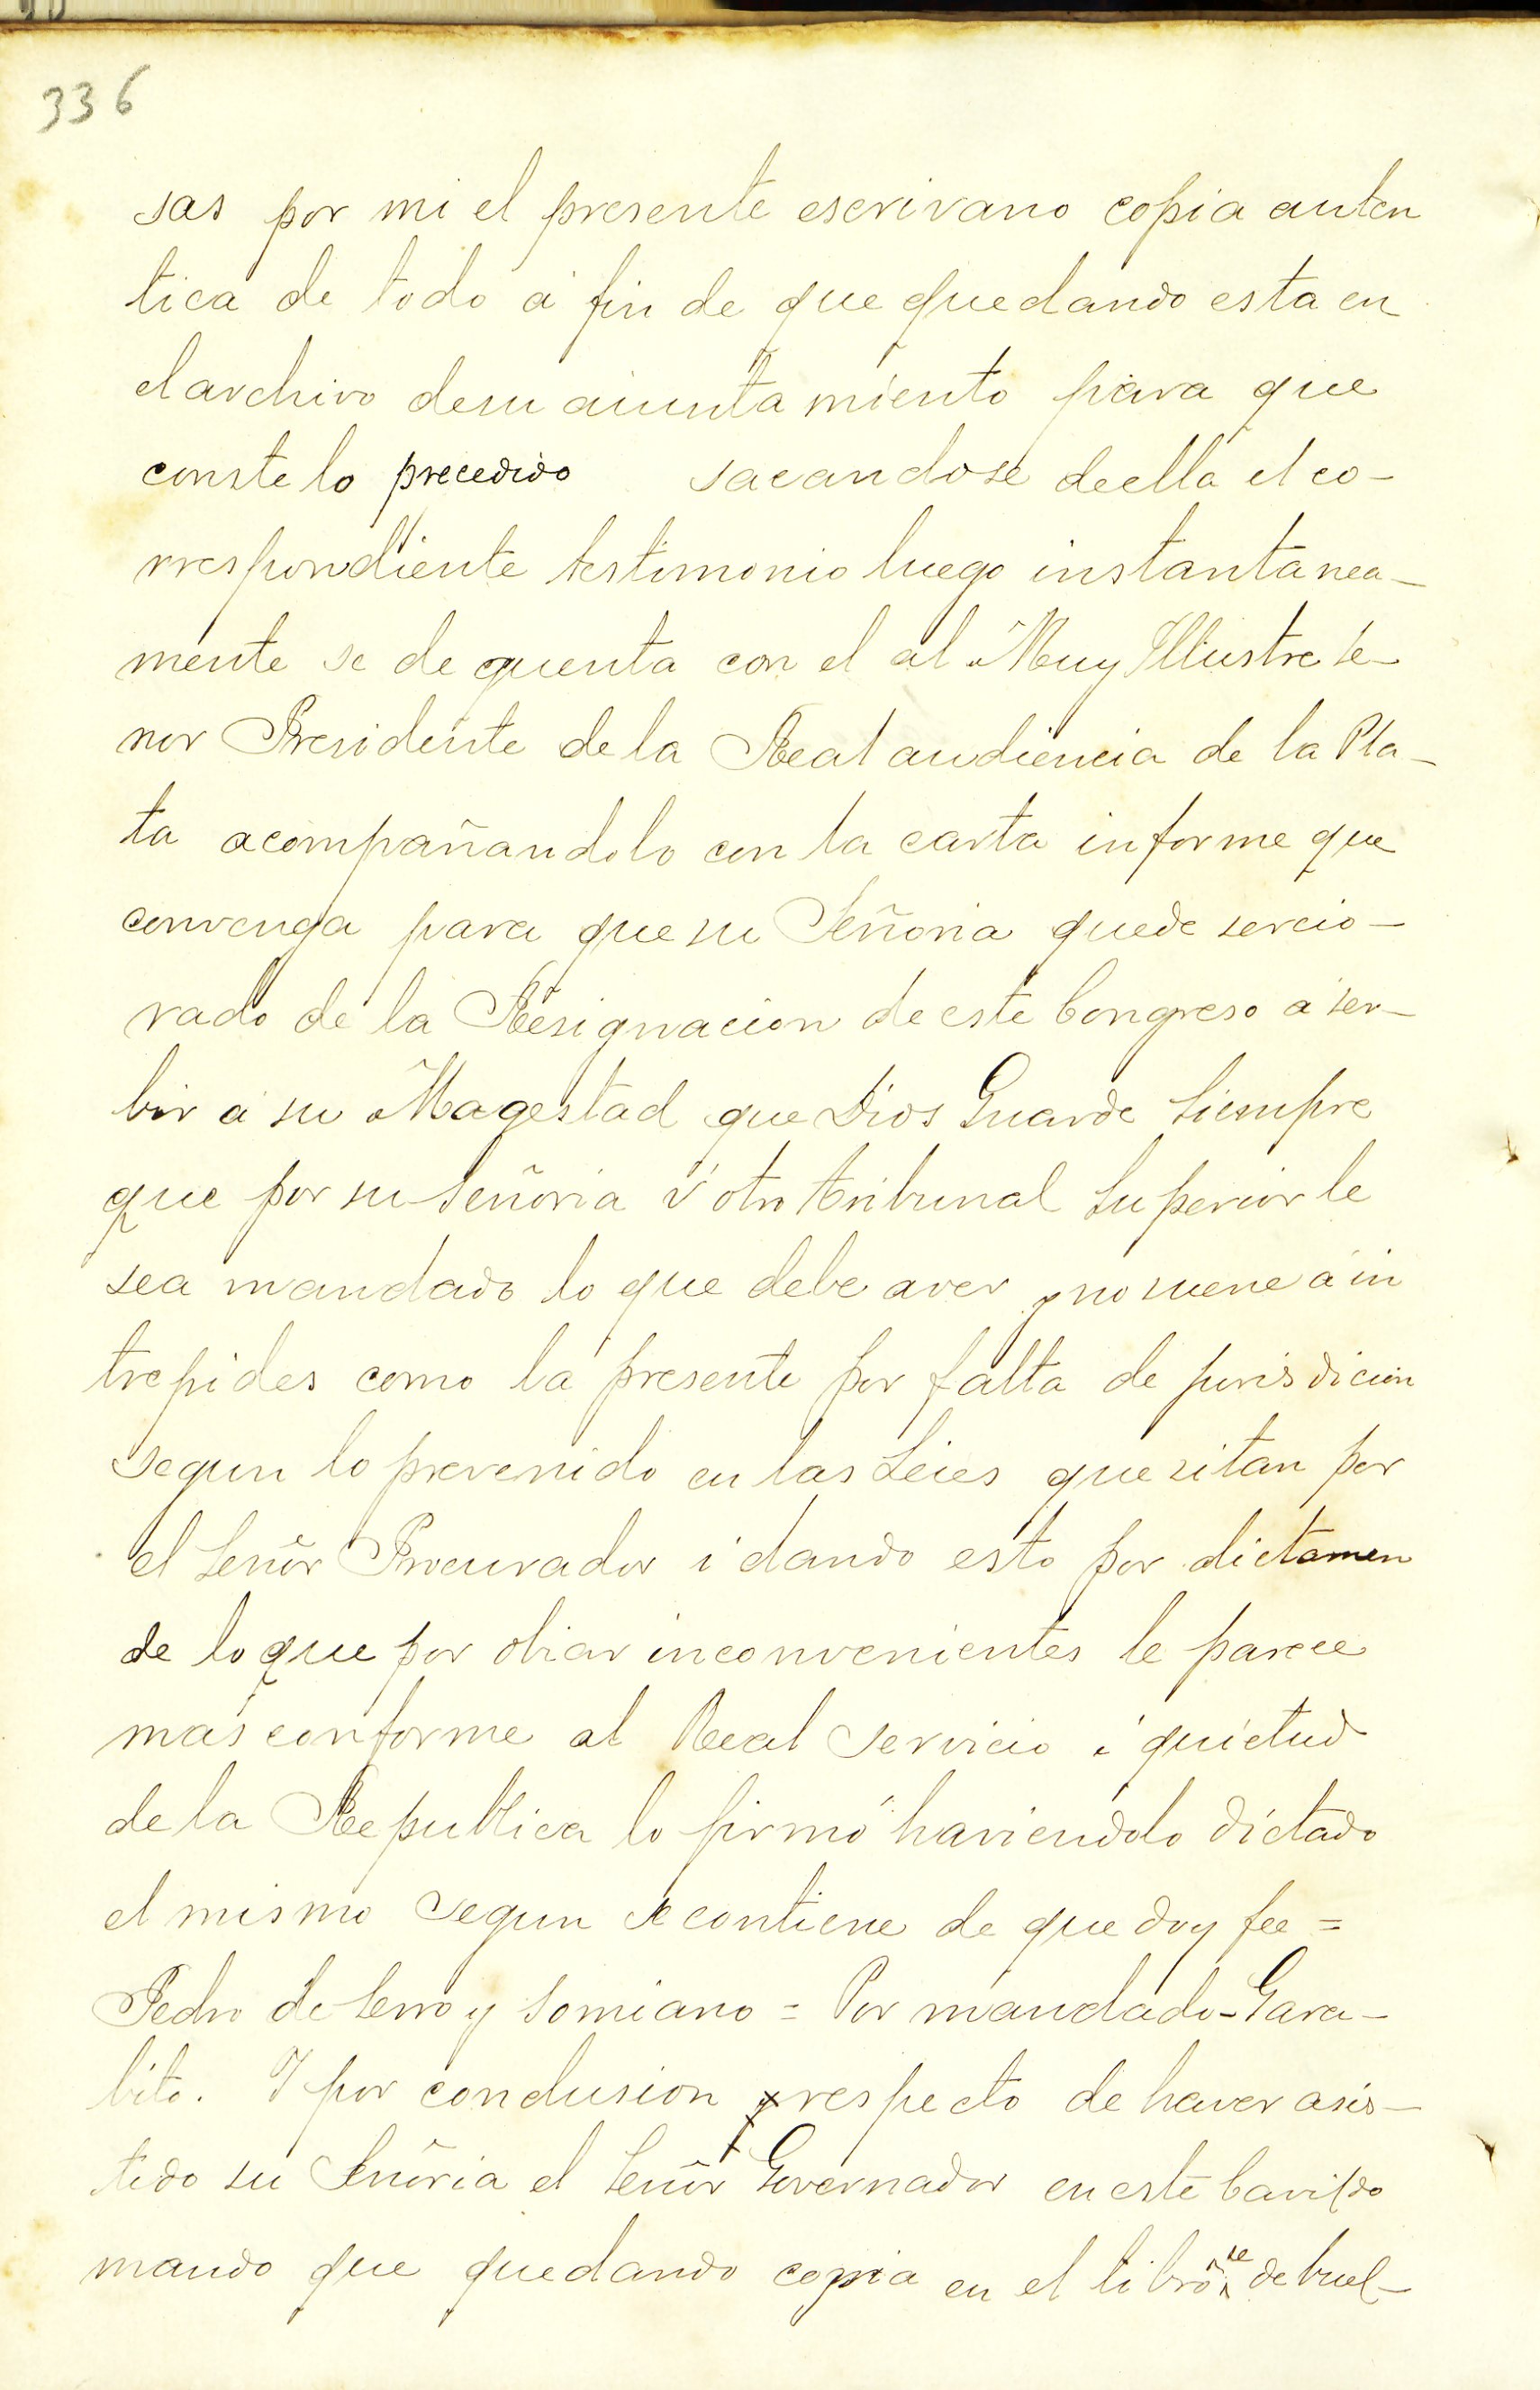 336
sas por mi el presente escrivano copia auten
tica de todo á fin de que quedando esta en
el archivo de su aiuntamiento para que
conste lo precedido sacandose de ella el co-
rrespondiente testimonio luego instantanea-
mente se de quenta con el al Muy Illustre Se-
nor Presidente de la Real audiencia de la Pla-
ta acompañandolo con la carta informe que
convenga para que su Señoria quede sercio-
rado de la Resignacion de este Congreso á ser-
bir á su Magestad que Dios Guarde Siempre
que por su Señoria ú otro tribunal Superior le
sea mandado lo que debe aver y no suene á in
trepides como la presente por falta de jurisdicion
segun lo prevenido en las Leies que sitan por
el Señor Procurador i dando esto por dictamen
de lo que por obiar inconvenientes le parece
mas conforme al Real servicio i quietud
de la Republica lo firmó haviendolo dictado
el mismo segun se contiene de que doy fee =
Pedro de Serro y Somiano = Por mandado - Gara-
bito. I por conclusion y respecto de haver asis-
tido su Señoria el Señor Governador en este Cavildo
mando que quedando copia en el libro se debuel-